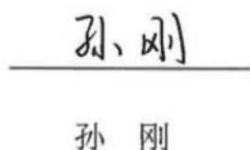 孙刚
孙 刚